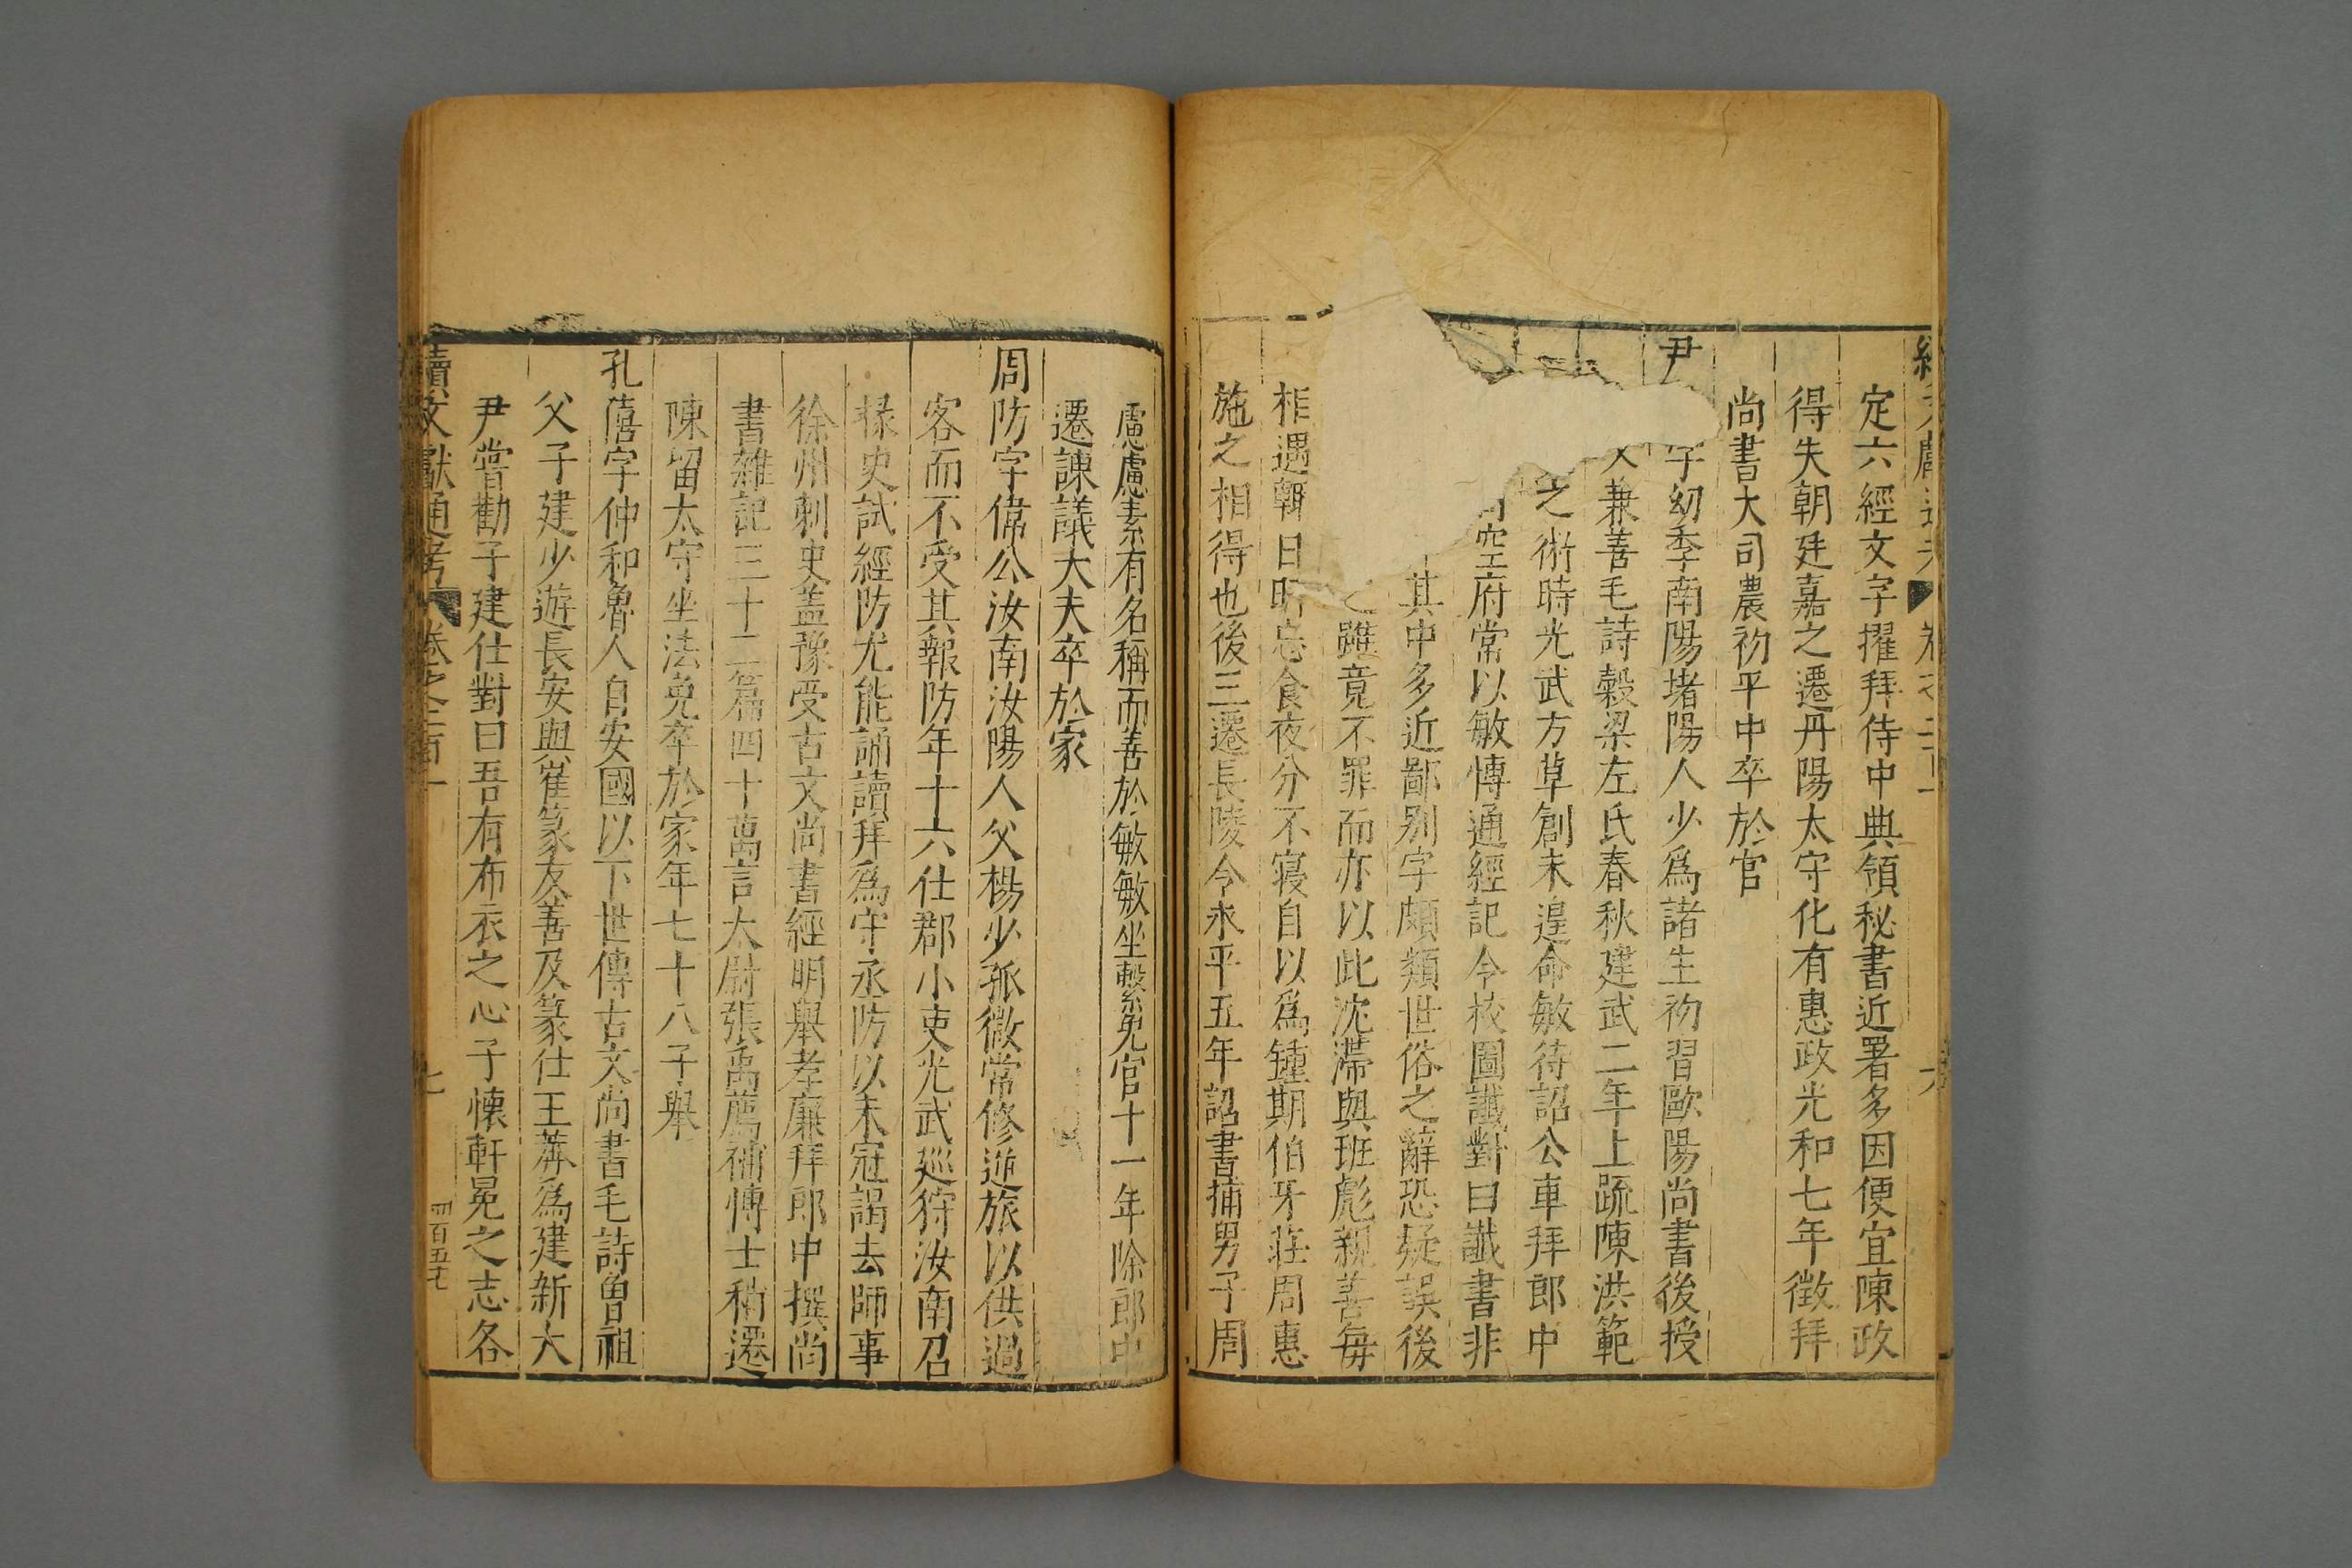 定六經文字擢拜侍中典領秘書近署多因便宜陳政
得失朝廷嘉之遷丹陽太守化有惠政光和七年徵拜
尚書大司農初平中卒於官
尹 字幼季南陽堵陽人少爲諸生初習歐陽尚書後授
兼善毛詩穀梁左氏春秋建武二年上疏陳洪範
之術時光武方草創未遑命敏待詔公車拜郎中
空府常以敏博通經記令校圖讖對曰讖書非
其中多近鄙别字頗類世俗之辭恐疑誤後
雖竟不罪而亦以此沈滯與班彪親善每
相遇輙日旰忘食夜分不寝自以爲鍾期伯牙莊周惠
施之相得也後三遷長陵令永平五年詔書捕男子周
慮慮素有名稱而善於敏敏坐繫免官十一年除郎中
遷諫議大夫卒於家
周防字偉公汝南汝陽人父楊少孤微常修逆旅以供過
客而不受其報防年十六仕郡小吏光武巡狩汝南召
掾史試經防尤能誦讀拜爲守丞防以未冠謁去師事
徐州刺史蓋豫受古文尚書經明舉孝廉拜郎中撰尚
書雜記三十二篇四十萬言太尉張禹薦補博士稍遷
陳留太守坐法免卒於家年七十八子舉
孔僖字仲和魯人自安國以下世傳古文尚書毛詩曽祖
父子建少遊長安與崔篆友善及篆仕王莽爲建新大
尹嘗勸子建仕對曰吾有布衣之心子懷軒冕之志各
續文獻通考 卷之二百一 七 四百五七